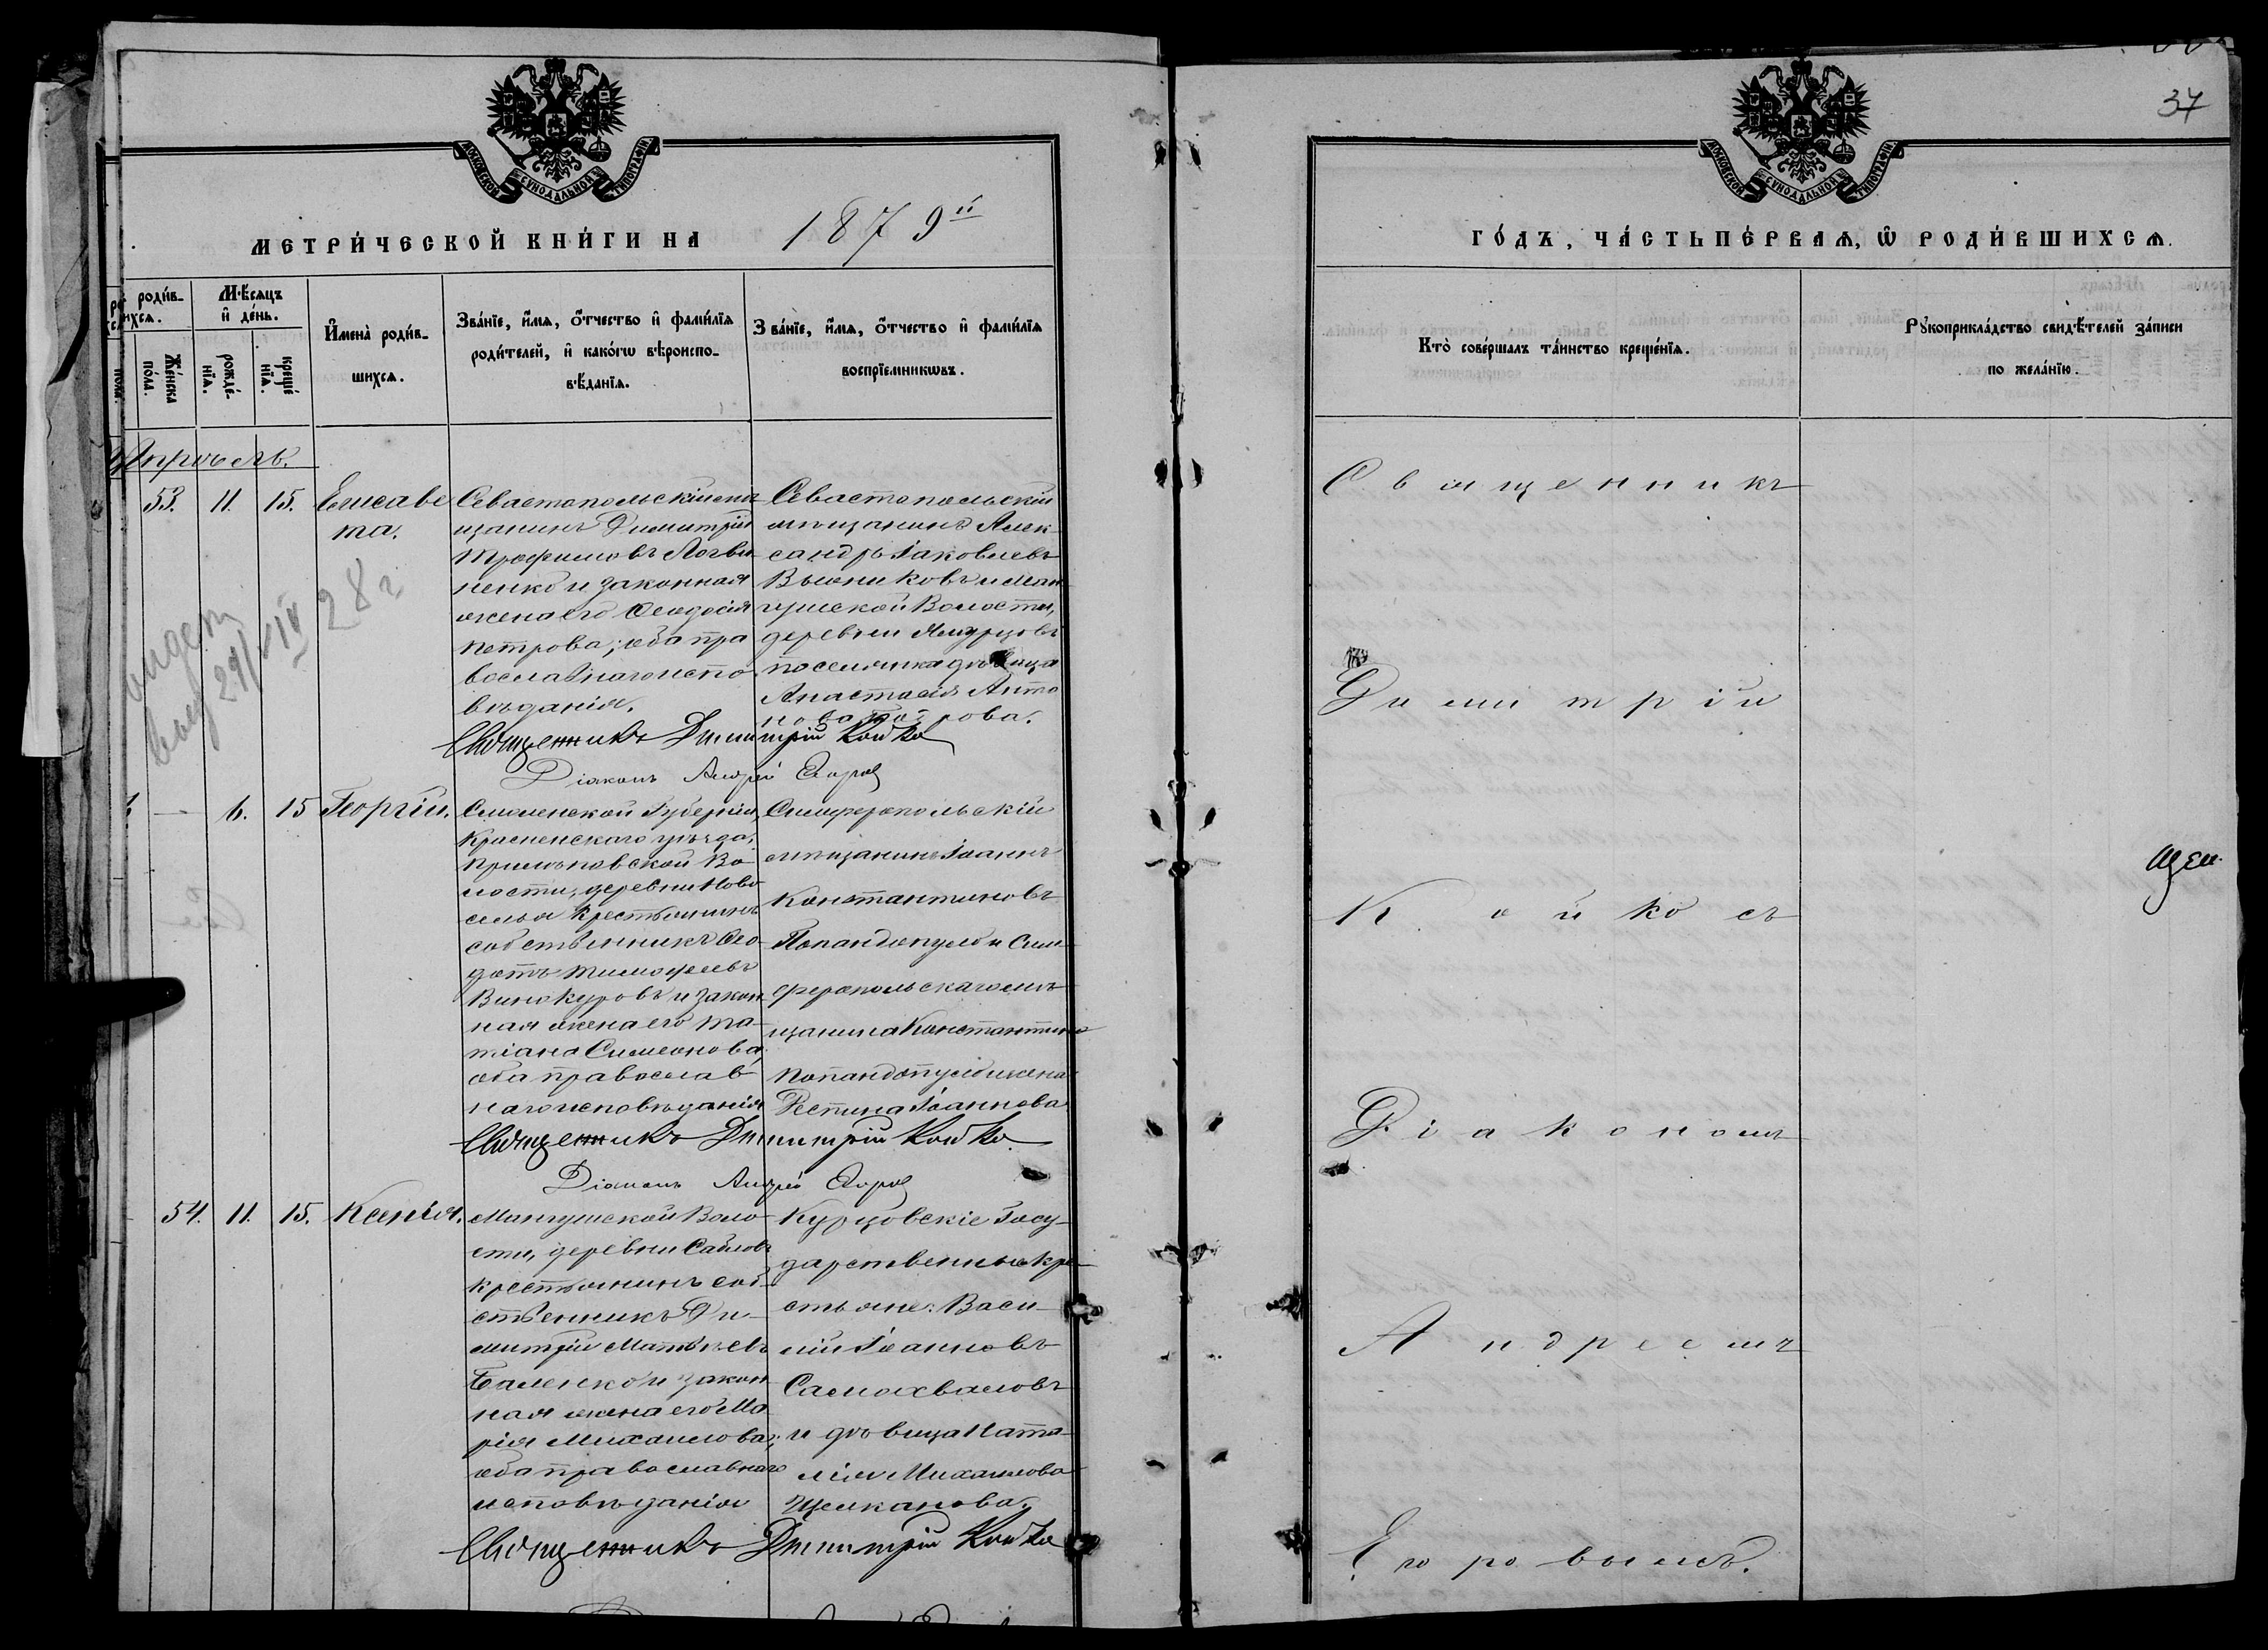 МОСКОВСКОЙ СУНОДАЛЬНОЙ ТИПОГРАФІИ
МЕТРИ́ЧЕСКОЙ КНИ́ГИ НА 1879й
роди́в-
ихсѧ.
Же́нска
по́ла.
М҃ѣсѧцъ
и҆ де́нь.
рожде́-
нїѧ.
креще́
нїѧ.
И҆мена̀ роди́в-
шихсѧ.
Зва́нїе, и҆́мѧ, ѻ҆́тчество и҆ фами́лїѧ
роди́телей, и҆ како́гѡ вѣроиспо-
вѣ́данїѧ.
Зва́нїе, и҆́мѧ, ѻ҆́тчество и҆ фами́лїѧ
воспрїе́мникѡвъ.
Апрѣль.
53. 11. 15. Елисаве
та.
Севастопольскій мѣ
щанинъ Димитрій
Трофимовъ Логви
ненко и законная
жена его Ѳеодосія
Петрова; оба пра
вославнаго испо
вѣданія.
Севастопольскій
мѣщанинъ Алек-
сандръ Іаковлевъ
и Ман
гушской Волости,
деревни
поселянка дѣвица
Анастасія Анто
нова
Священникъ Димитрій Койко
Діаконъ Андрей Егоров
28 г
29/VIII
— 6. 15 Георгій.
Смоленской Губерніи,
Красненскаго уѣзда,
Во-
лости, деревни Ново
селья крестьянинъ
собственникъ Ѳео-
дотъ Тимофеевъ
Винокуровъ и закон
ная жена его Та-
тіана Симеонова,
оба православ-
наго исповѣданія
Симферопольскій
мѣщанинъ Іоаннъ
Константиновъ
Попандопуло и Сим
феропольскаго мѣ-
щанина Константина
Попандопуло жена
Іоаннова
Священникъ Димитрій Койко.
Діаконъ Андрей Егоров
54. 11. 15. Ксенія.
Мангушской Воло-
сти, деревни Сабловъ
крестьянинъ соб-
ственникъ Ди-
митрій Матвѣевъ
Баленко и закон
ная жена его Ма
рія Михаилова;
оба православнаго
исповѣданія
Курцовскіе Госу-
дарственные кре-
стьяне: Васи-
лій Іоанновъ
Самохваловъ
и дѣвица Ната-
лія Михаилова
Щелканова.
Священникъ Димитрій Койко
37
МОСКОВСКОЙ СУНОДАЛЬНОЙ ТИПОГРАФІИ
ГО́ДЪ, ЧА́СТЬ ПЕ́РВАѦ, Ѡ҆ РОДИ́ВШИХСѦ.
Кто̀ соверша́лъ та́инство креще́нїѧ.
Рꙋкоприкла́дство свидѣ́телей за́писи
по жела́нїю.
Священникъ
Димитрій
Койко съ
Діакономъ
Андреемъ
Егоровымъ.